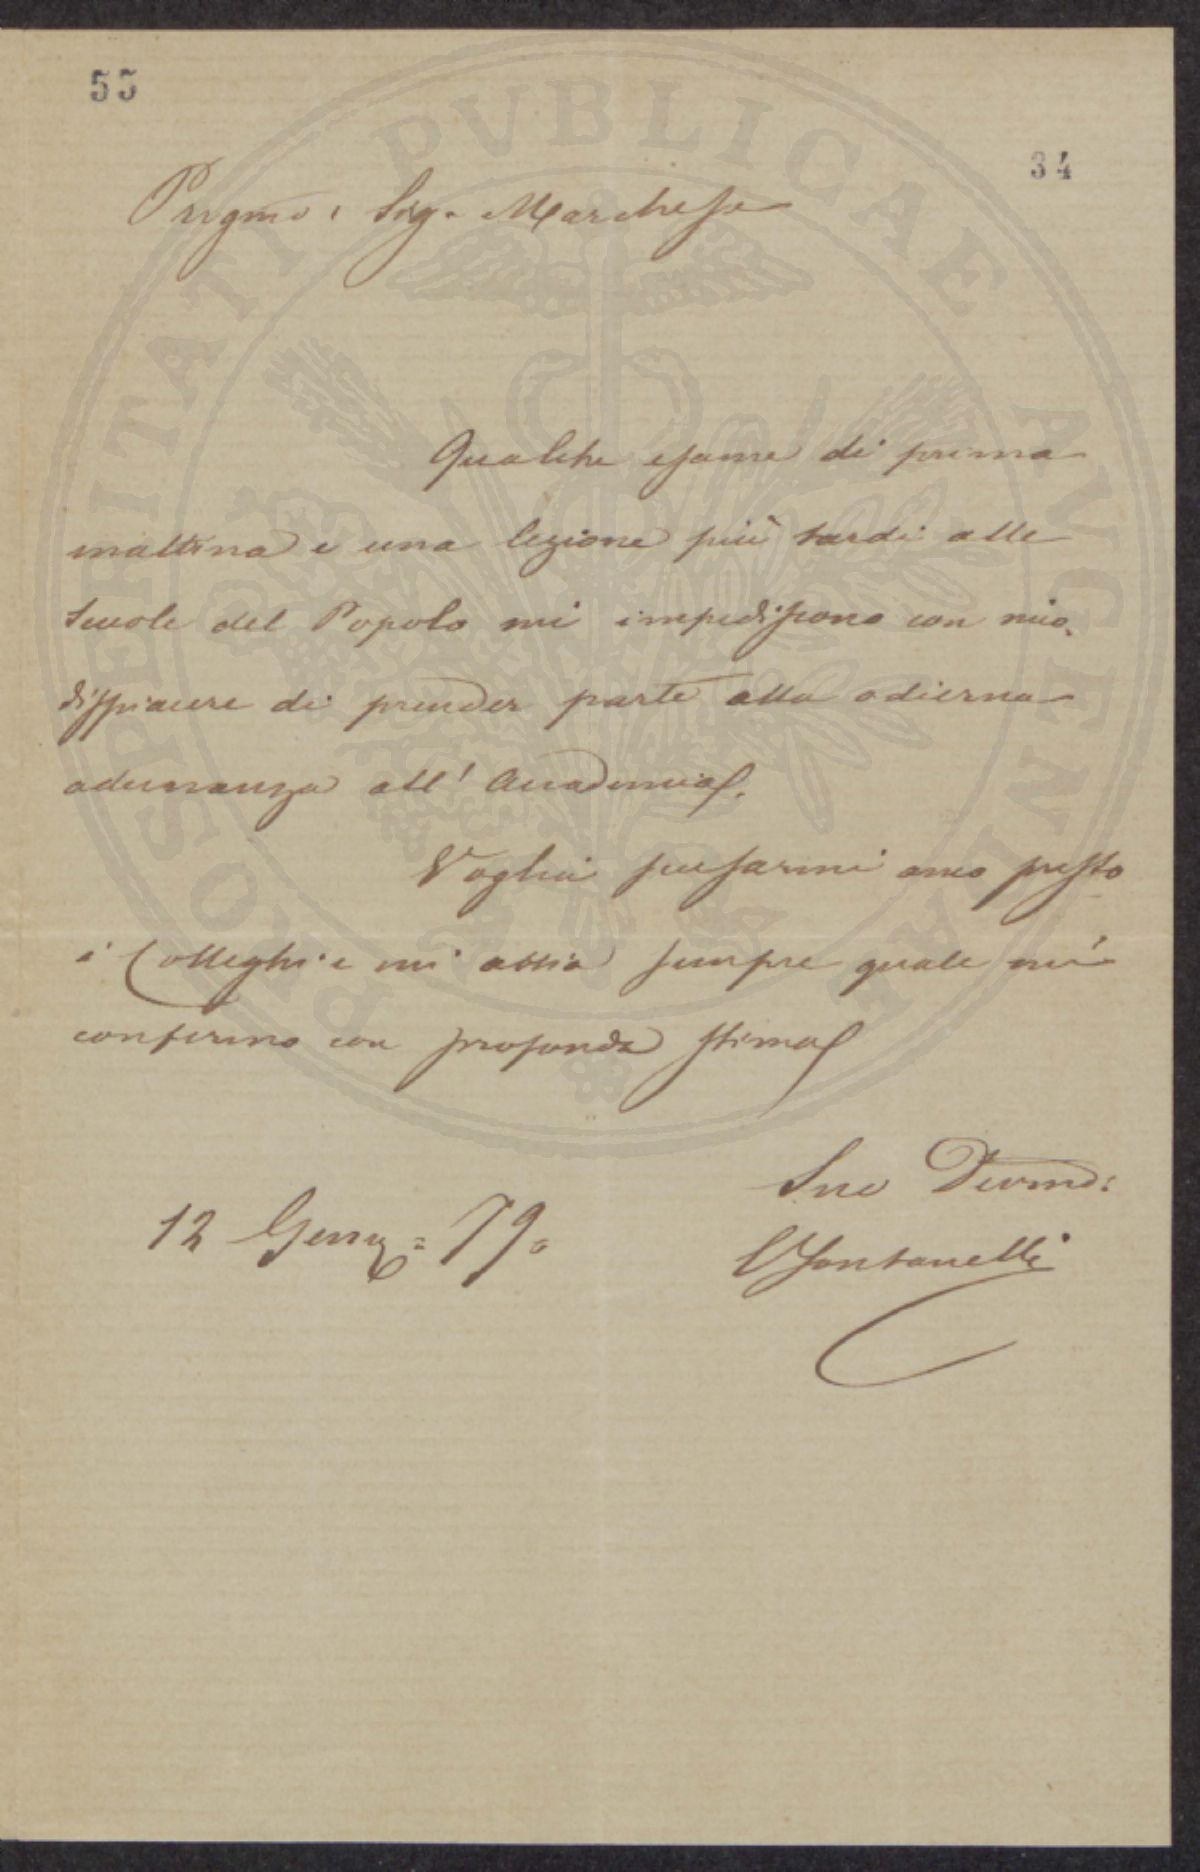 55
34
Pregmo: Sig. Marchese
Qualche esame di prima
mattina e una lezione più tardi alle
Scuole del Popolo mi impediscono con mio
dispiacere di prender parte alla odierna
adunanza all' Accademia.
Voglia scusarmi anco presso
i Colleghi e mi abbia sempre quale mi
confermo con profonda stima
Suo Devmo:
C Fontanelli
12 Genn: 79.
PROSPERITATI PVBLICAE AVGENDAE